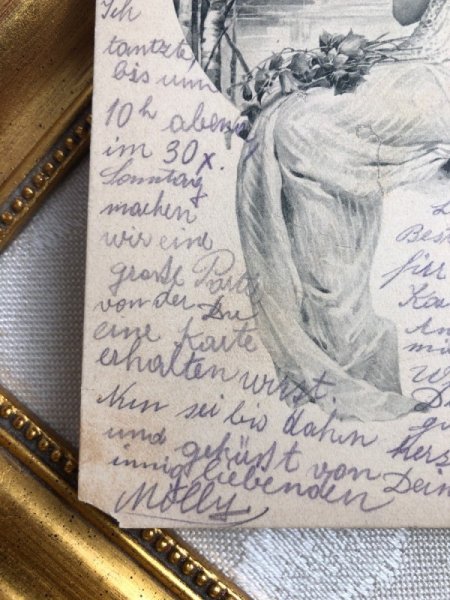 Ich
tantzte
bis um
10h abends
im 30x.
Sonntag
machen
wir eine
große Partie
von der Du
eine Karte
erhalten wirst.
Nun sei bis dahin
und geküßt von Dein
innigliebenden
Molly
Best
für
Ka
An
mi
W
D
gu
herz